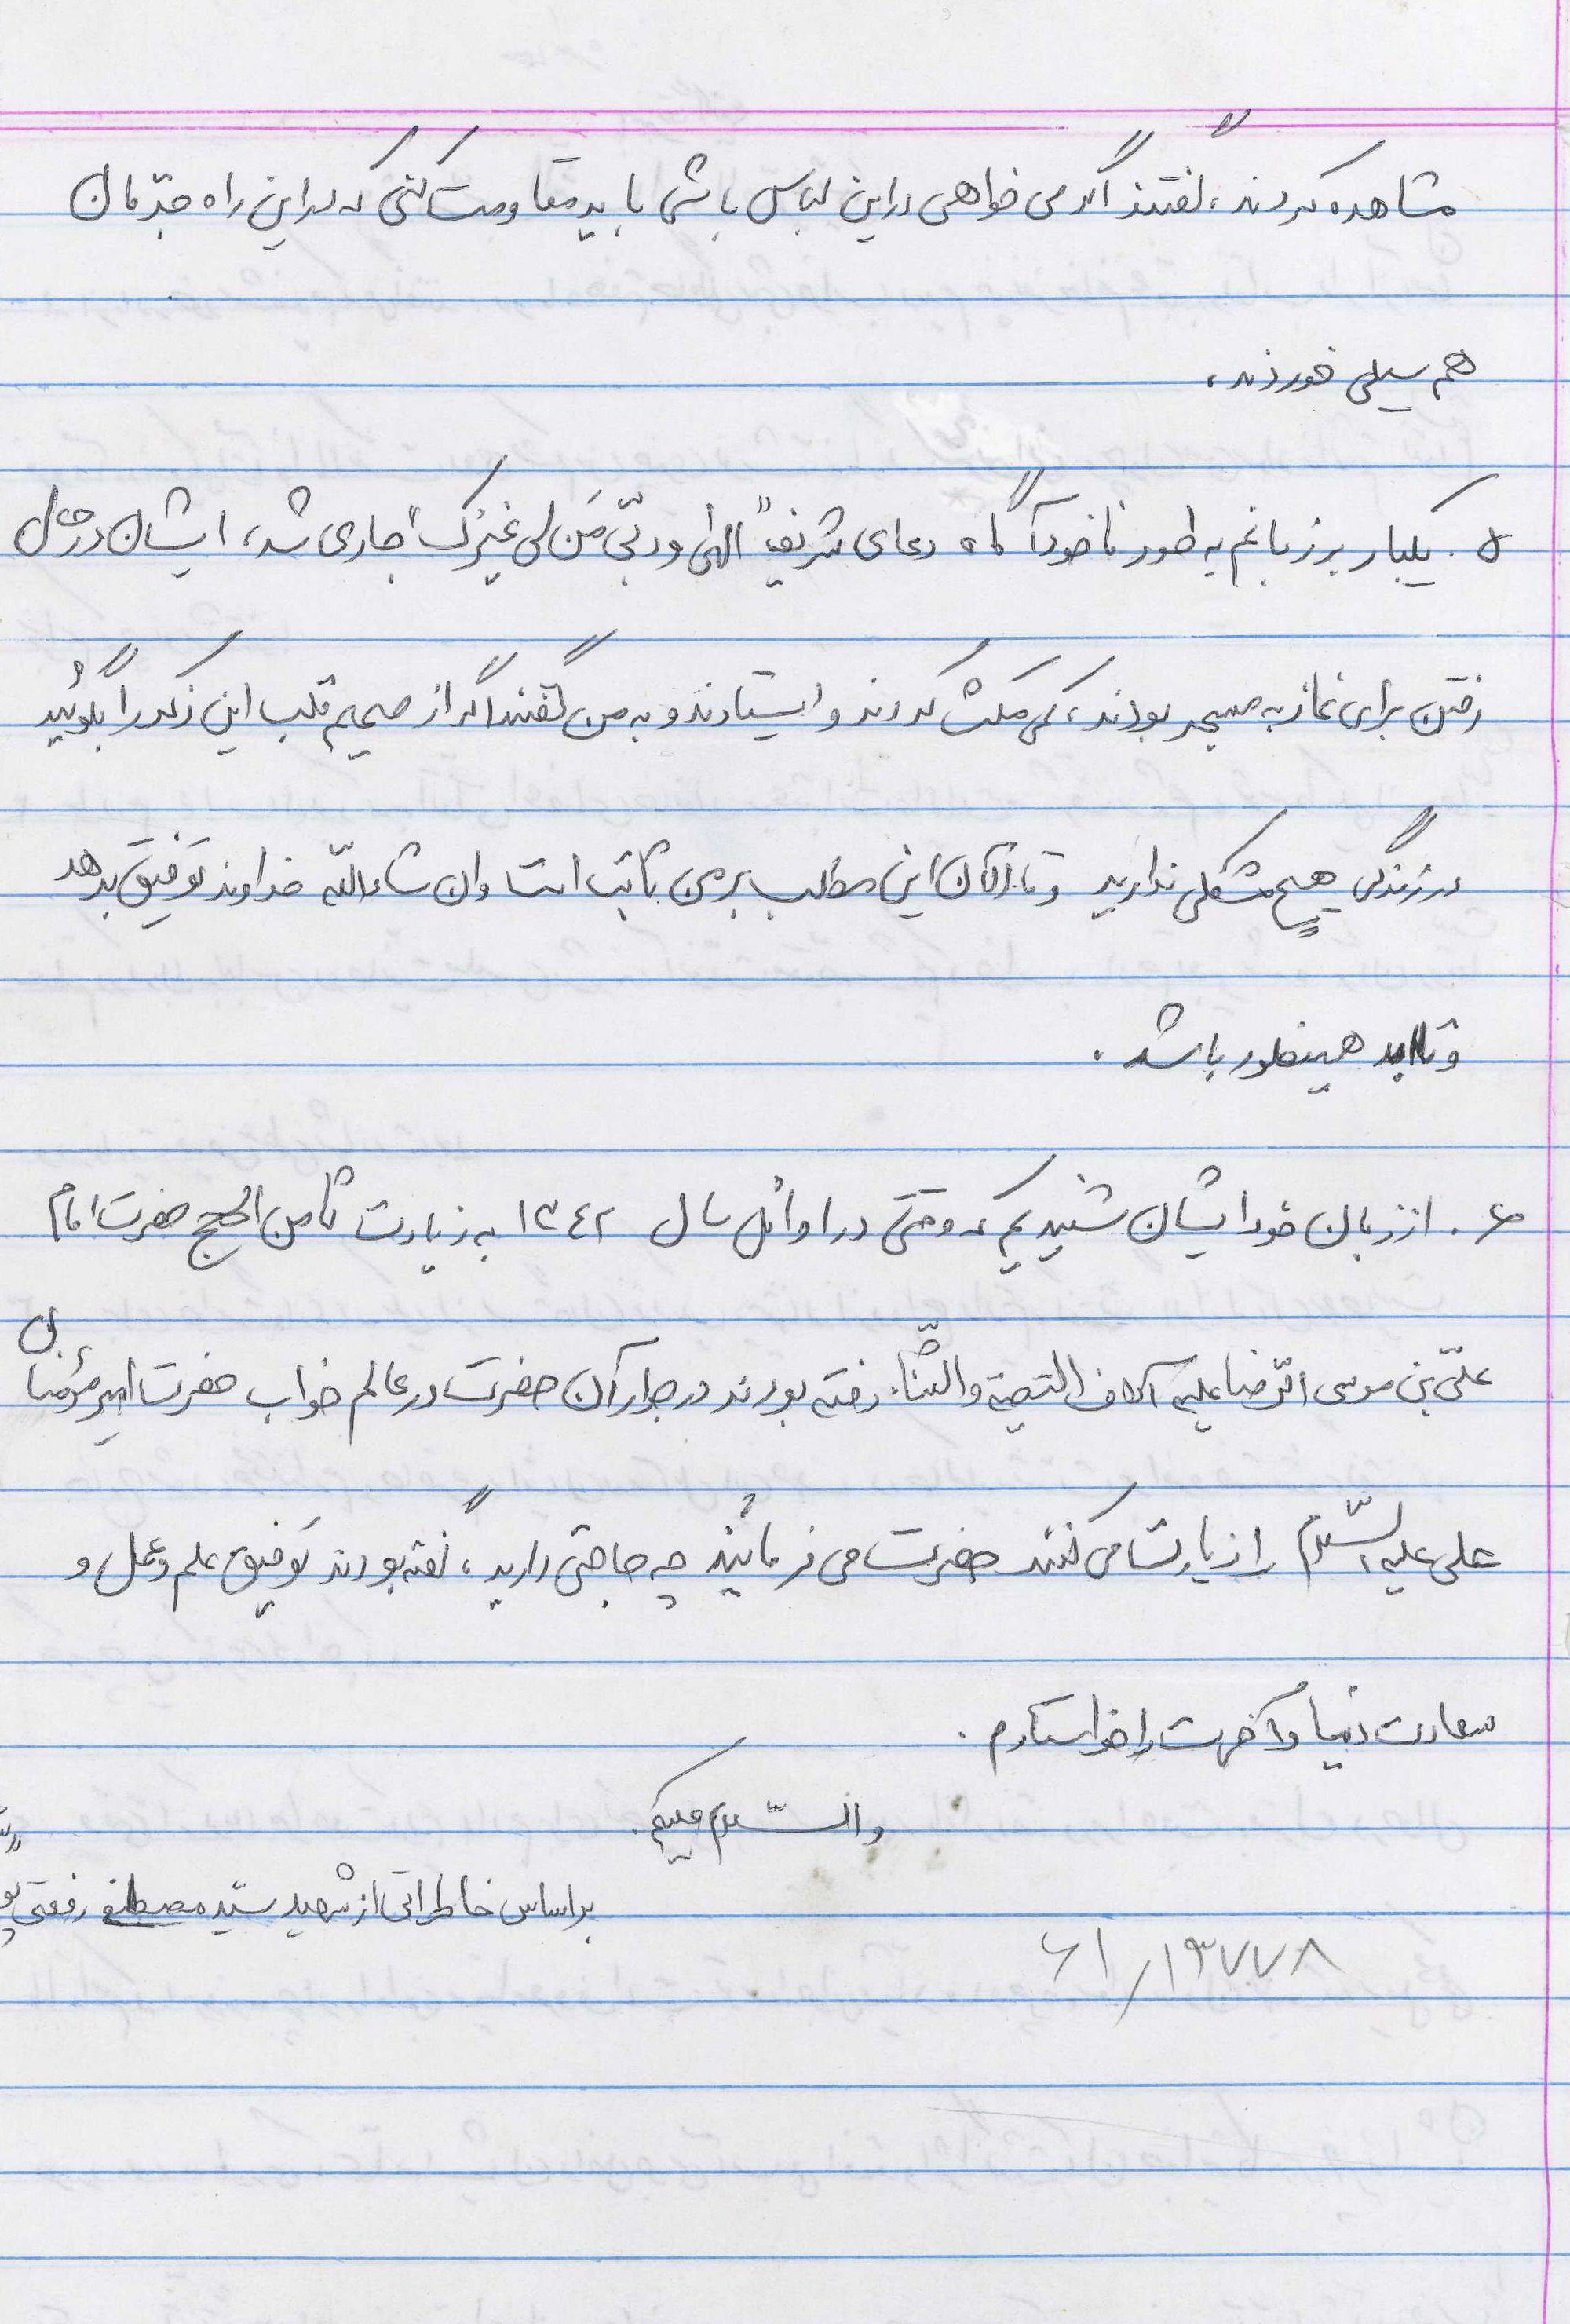 مشاهده کردند، گفتند اگر می خواهی در این لباس باشی باید مقاومت کنی که در این راه جدّمان
هم سیلی خوردند،
۵. یکبار بر زبانم به طور ناخودآگاه دعای شریف "الهی و ربّی مَن لی غیرُک" جاری شد، ایشان در حال
رفتن برای نماز به مسجد بودند، کمی مکث کردند و ایستادند و به من گفتند اگر از صمیم قلب این ذکر را بگوئید
در زندگی هیچ مشکلی ندارید و تا الآن این مطلب بر من ثابت است و ان شاءاللّه خداوند توفیق بدهد
و تا ابد همینطور باشد.
۶. از زبان خود ایشان شنیدیم که وقتی در اوائل سال ۱۳۴۲ به زیارت ثامن الحجج حضرت امام
علیّ بن موسی الرّضا علیه آلاف التحیّة و الثّناء رفته بودند در جوار آن حضرت در عالم خواب حضرت امیرمؤمنان
علی علیه السّلام را زیارت می کنند حضرت می فرمائیند چه حاجتی دارید، گفته بودند توفیق علم و عمل و
سعادت دنیا و آخرت را خواستارم.
والسّلام علیکم.
بر اساس خاطراتی از شهید سیّد مصطفی رفعتی
۶۱/۱۳۷۷۸